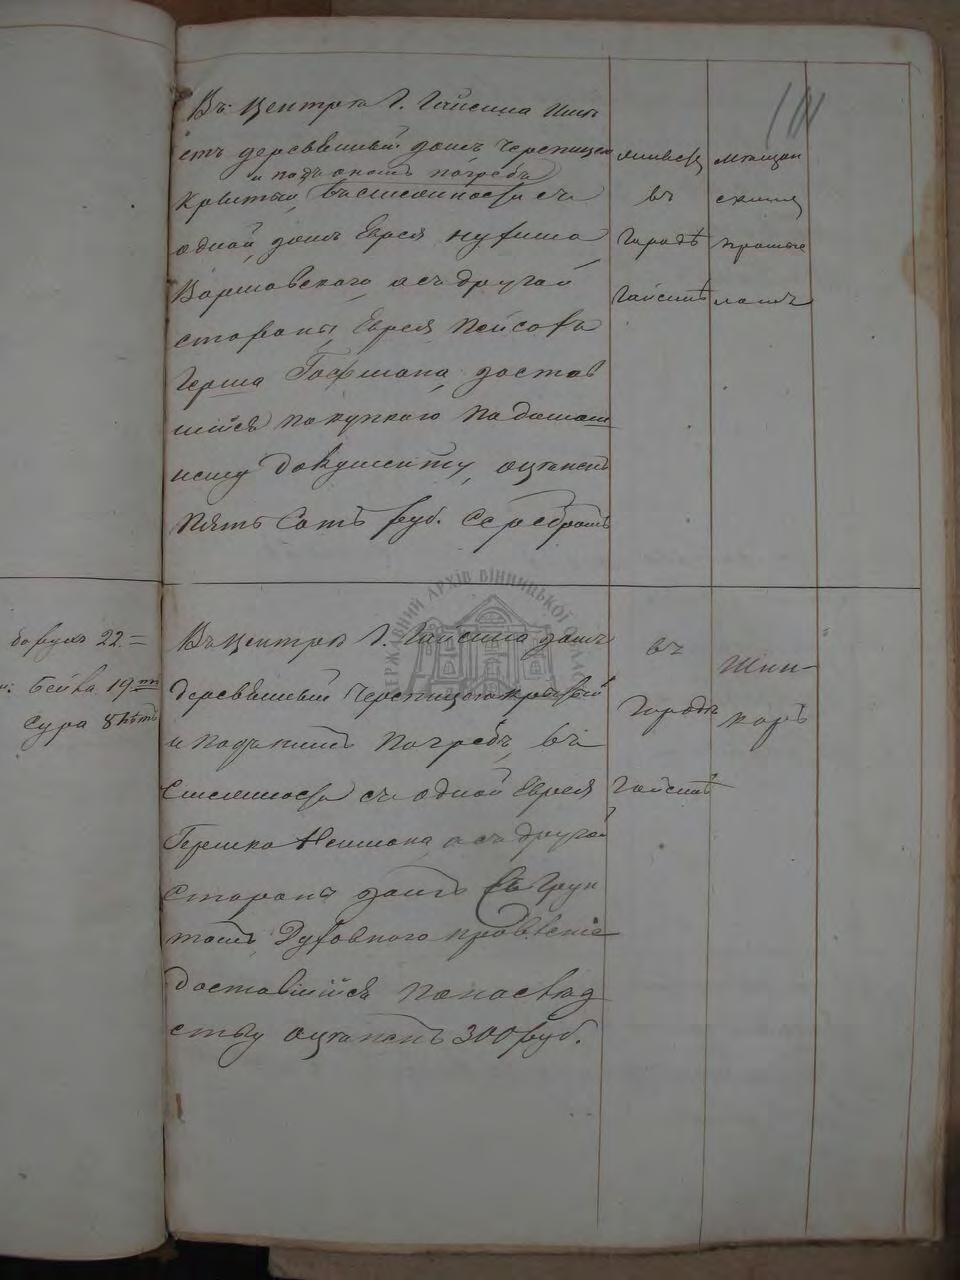 111
Въ Центрѣ Г. Гайсина имѣ
етъ деревяный домъ черепицею
и подъ онымъ погребъ
крытый, въ смежности съ
одной, домъ Еврея Нухима
Варшавскаго, а съ другой
стороны, Еврея Пейсовъ
Герша Гофмана, достав
шійся покупкою по домаш
нему документу, оцѣненъ
Пять Сотъ руб. Серебромъ
живетъ
въ
Городѣ
Гайсинѣ
мещан
скимъ
промыс
ломъ
Борухъ 22.=
Бейла 19ти
Сура 8 лѣтъ
Въ Центрѣ Г. Гайсина домъ
деревяный черепицею крытый
и подъ нимъ погребъ, въ
Смежности съ одной Еврея
Гершка Неймона, а съ другой
Стороны домъ Съ Грун
томъ, Духовного правленія
доставшійся по наслѣд
ству оцѣненъ 300 руб.
въ
Городѣ
Гайсинѣ
Шин-
каръ
ДЕРЖАВНИЙ АРХІВ ВІННИЦЬКОЇ ОБЛАСТІ